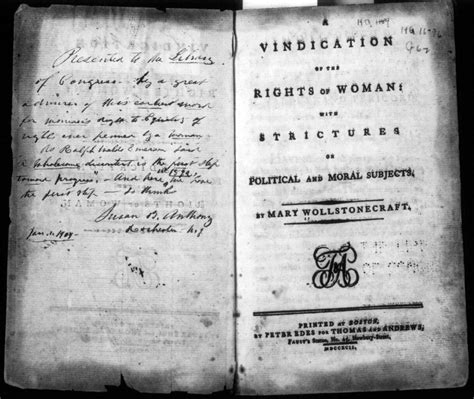 Presented to the Library
of Congress - by a great
admirer of this earliest work
for woman's right to Equality of
right ever penned by a woman.
As Ralph Waldo Emerson said
"A wholesome discontent is the first step
toward progress" - And here, in 1792, we have
the first step - so thinks
Susan B. Anthony
Jan. 1. 1904 - Rochester N.Y.
A
VINDICATION
OF THE
RIGHTS OF WOMAN:
WITH
STRICTURES
ON
POLITICAL AND MORAL SUBJECTS,
BY MARY WOLLSTONECRAFT,
PRINTED AT BOSTON,
BY PETER EDES FOR THOMAS AND ANDREWS,
FAUST'S Statue, No. 45, Newbury-Street,
MDCCXCII.